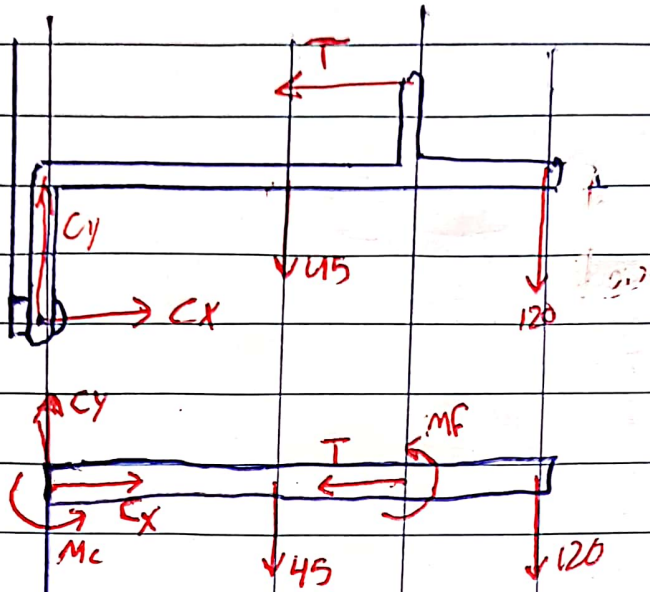 T
Cy
45
Cx
120
Cy
MF
T
Cx
Mc
45
120